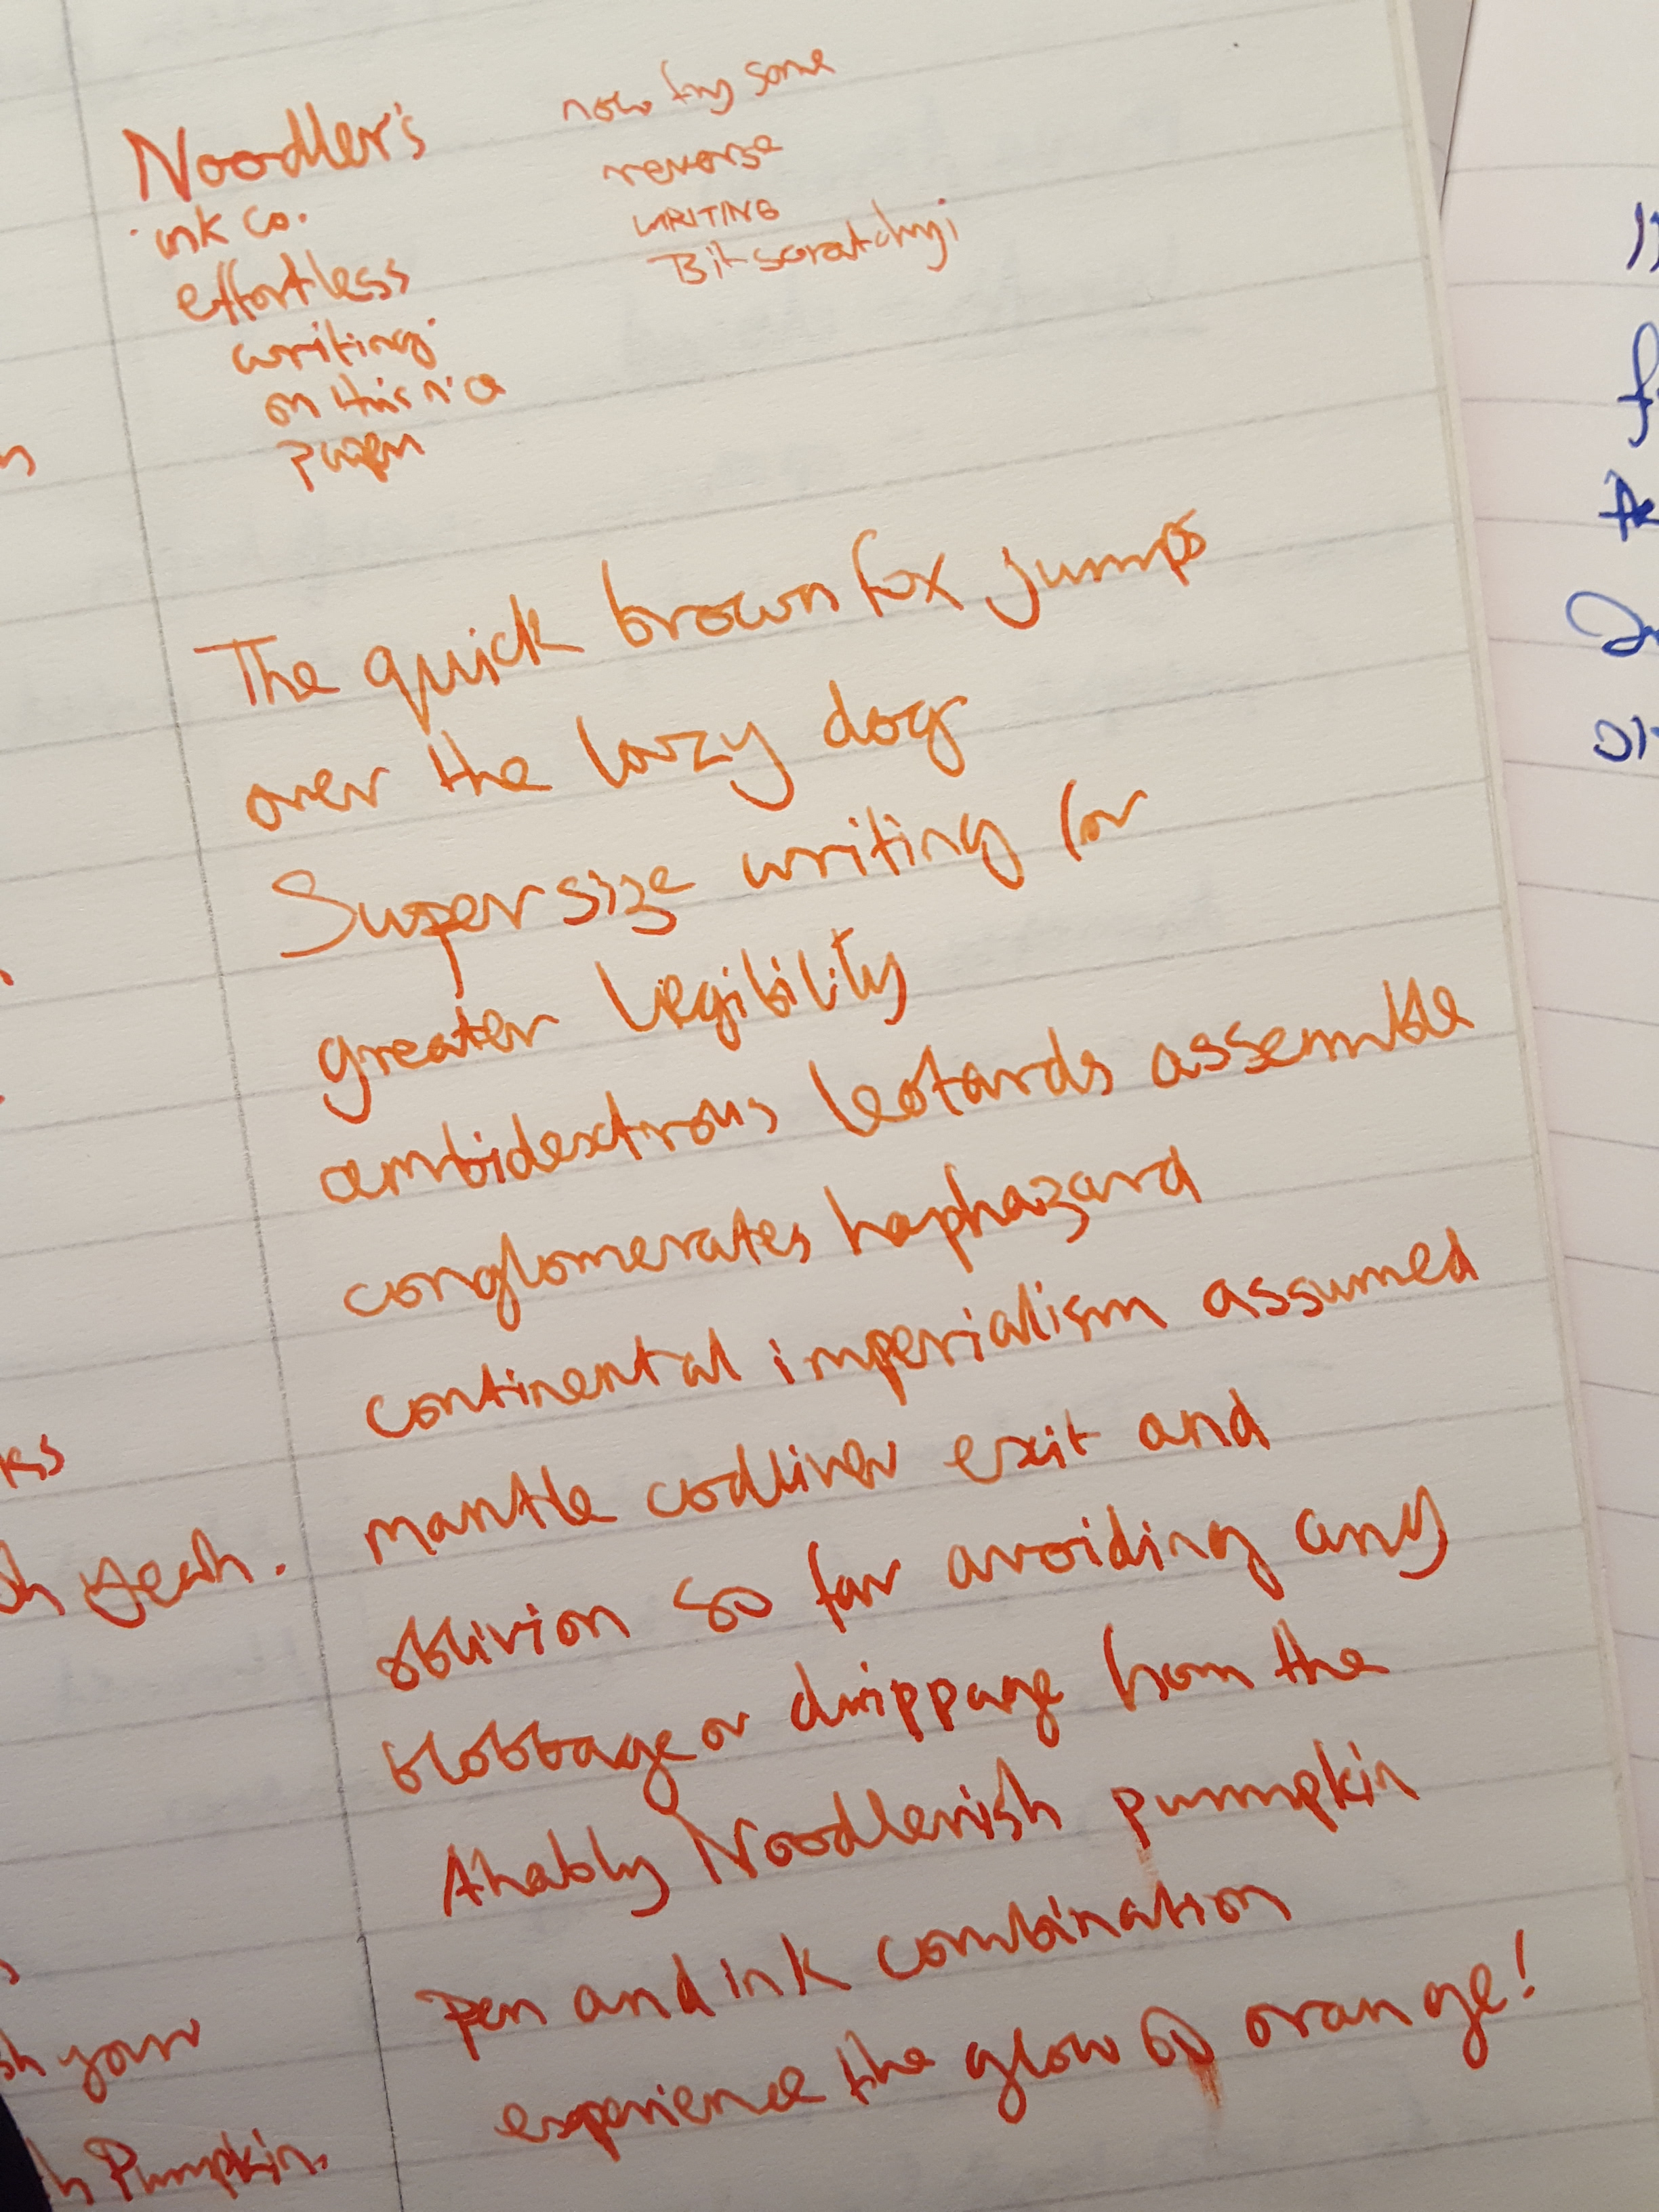 Noodler's
ink co.
effortless
writing
on this nice
paper
now try some
reverse
WRITING
Bit scratchy!
The quick brown fox jumps
over the lazy dog
Supersize writing for
greater legibility
ambidextrous leotards assemble
conglomerates haphazard
continental imperialism assumed
mantle codliver exit and
oblivion so far avoiding any
blobbage or drippage from the
Ahably Noodlerish pumpkin
pen and ink combination
experience the glow of orange!
yeah.
your
Pumpkin.